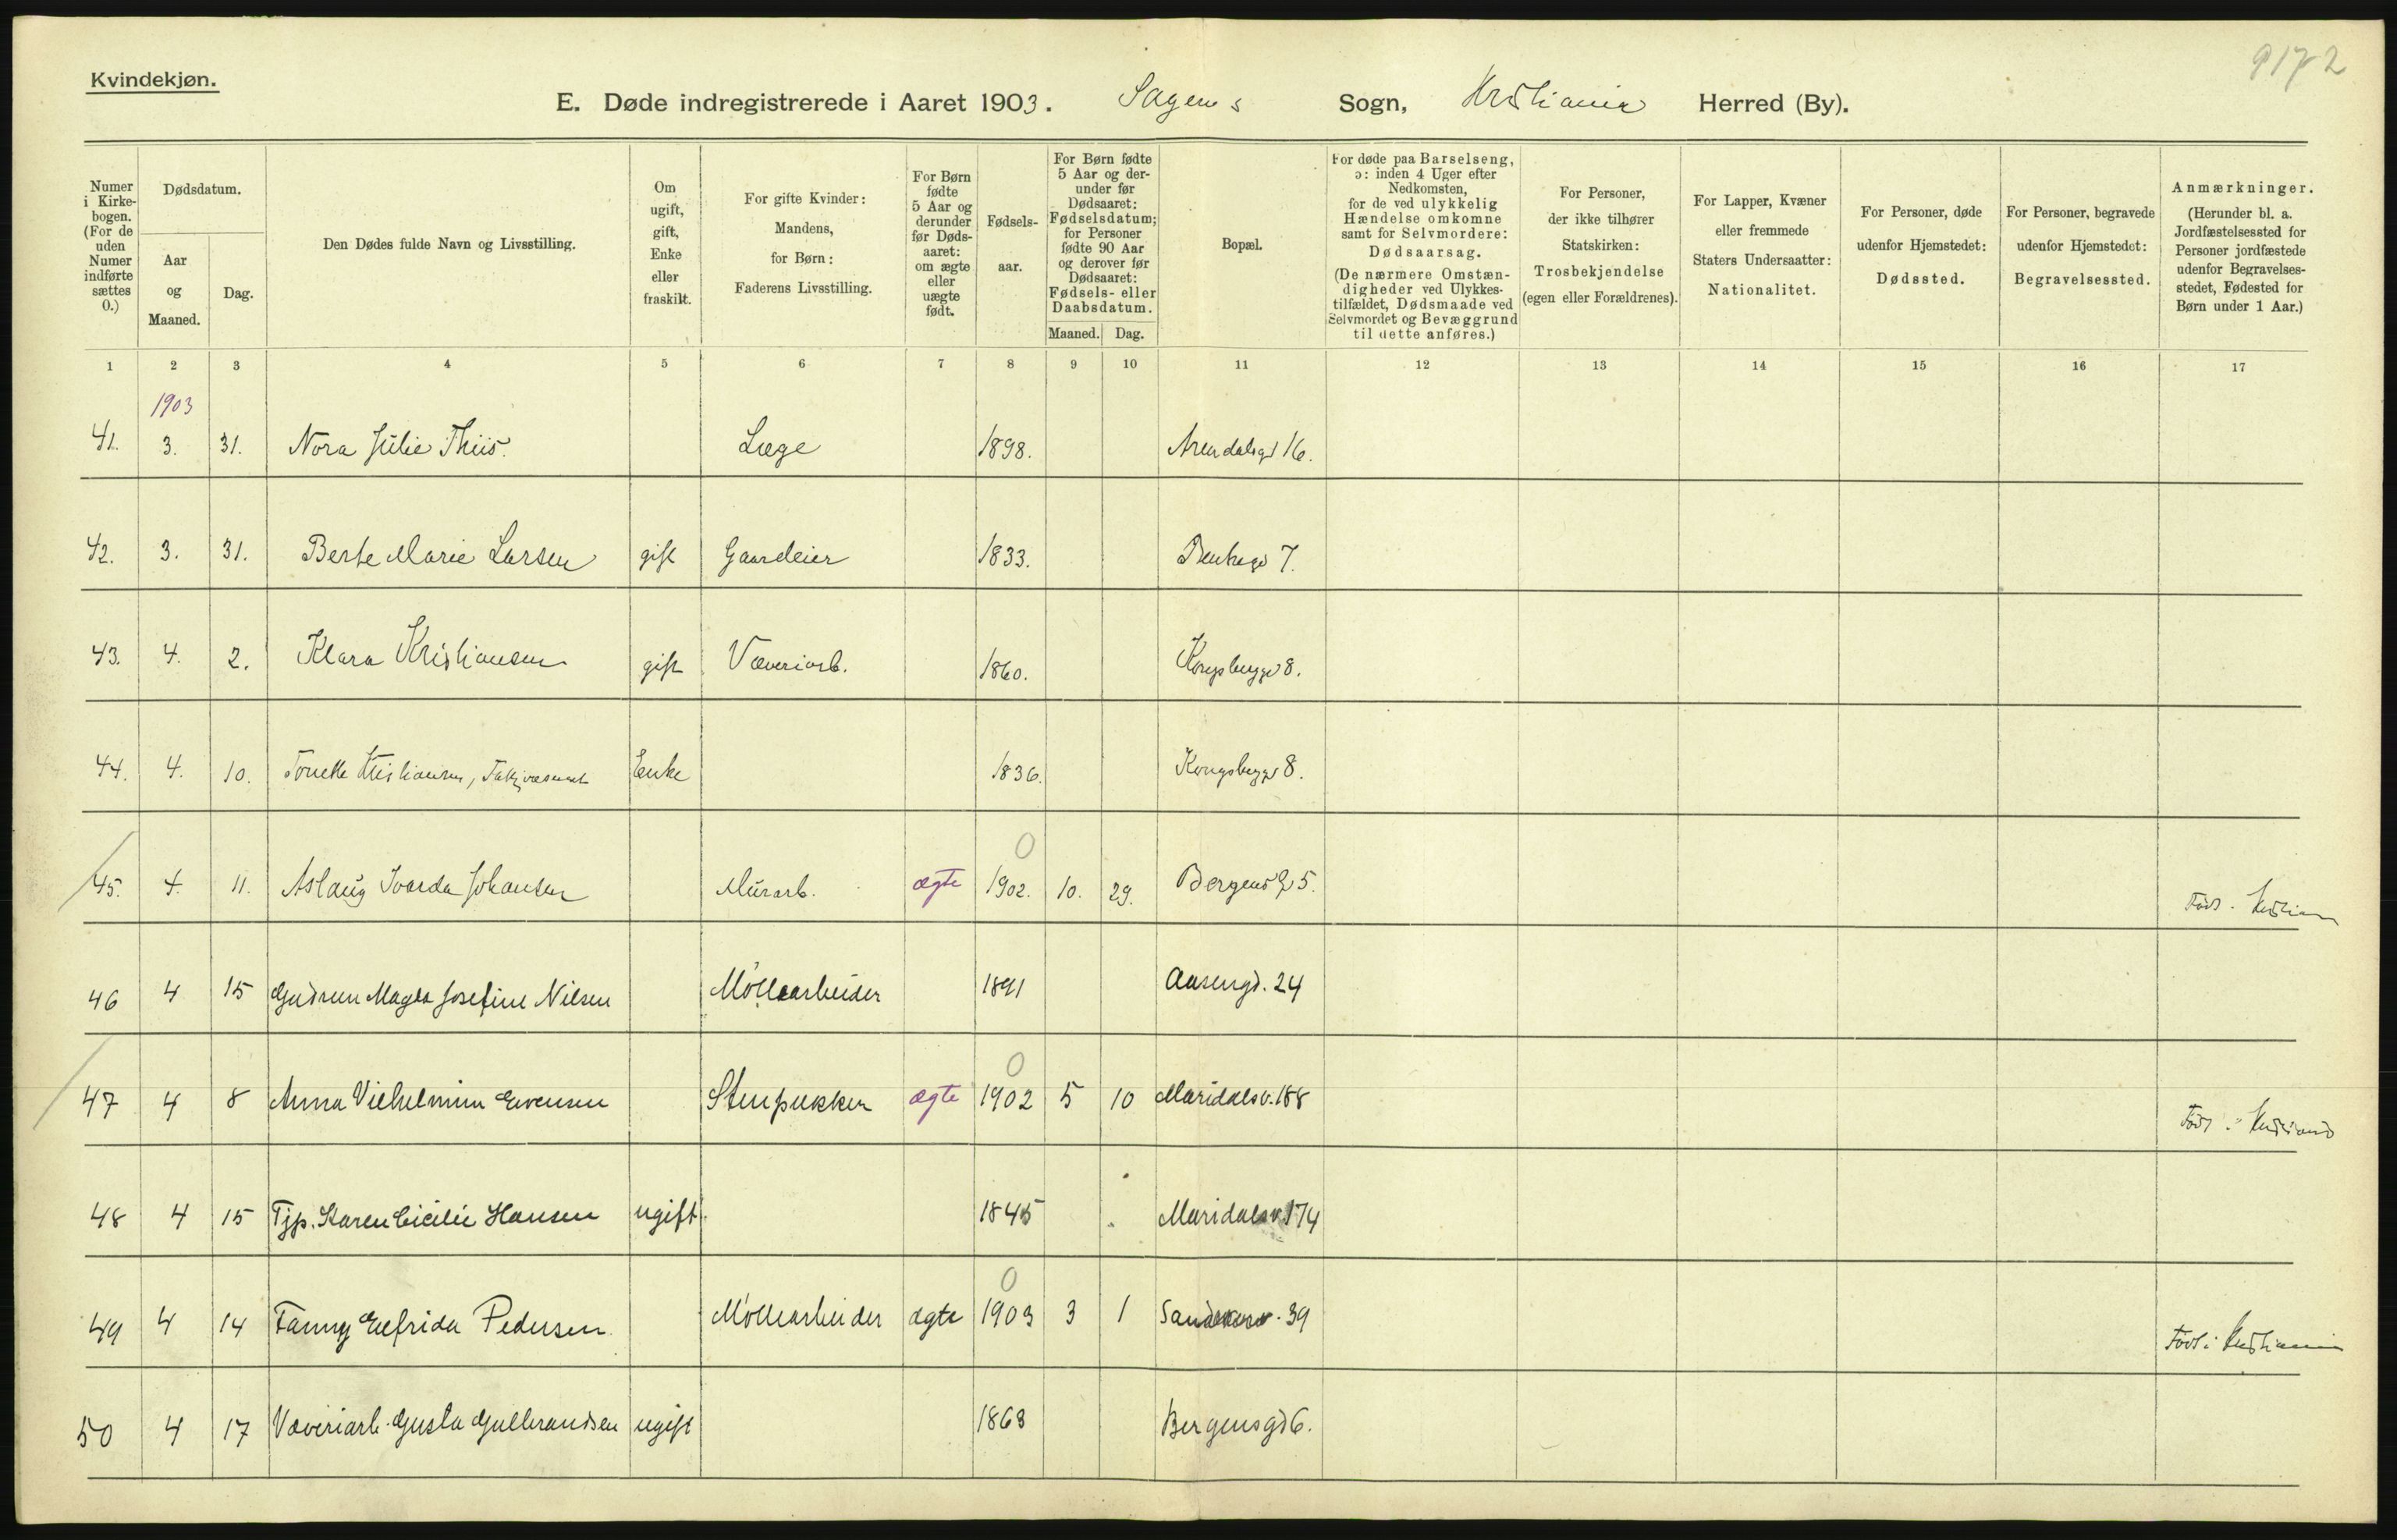 9172
Kvindekjøn.
E. Døde indregistrerede i Aaret 1903. Sagenes Sogn, Kristiania Herred (By).
Numer i Kirkebogen. (For de uden Numer indførte sættes 0.)
Dødsdatum.
Aar og Maaned.
Dag.
Den Dødes fulde Navn og Livsstilling.
Om ugift, gift, Enke eller fraskilt.
For gifte Kvinder: Mandens, for Børn: Faderens Livsstilling.
For Børn fødte 5 Aar og derunder før Dødsaaret: om ægte eller uægte født.
Fødselsaar.
For Børn fødte 5 Aar og derunder før Dødsaaret: Fødselsdatum; for Personer fødte 90 Aar og derover før Dødsaaret: Fødsels- eller Daabsdatum.
Maaned. Dag.
Bopæl.
For døde paa Barselseng, ɔ: inden 4 Uger efter Nedkomsten, for de ved ulykkelig Hændelse omkomne samt for Selvmordere: Dødsaarsag. (De nærmere Omstændigheder ved Ulykkestilfældet, Dødsmaade ved Selvmordet og Bevæggrund til dette anføres.)
For Personer, der ikke tilhører Statskirken: Trosbekjendelse (egen eller Forældrenes).
For Lapper, Kvæner eller fremmede Staters Undersaatter: Nationalitet.
For Personer, døde udenfor Hjemstedet: Dødssted.
For Personer, begravede udenfor Hjemstedet: Begravelsessted.
Anmærkninger. (Herunder bl. a. Jordfæstelsessted for Personer jordfæstede udenfor Begravelsesstedet, Fødested for Børn under 1 Aar.)
1 2 3 4 5 6 7 8 9 10 11 12 13 14 15 16 17
1903
41. 3. 31. Nora Julie Thiis. Læge 1898. Arendalsgd 16.
42. 3. 31. Berte Marie Larsen gift Gaardeier 1833. 7.
43. 4. 2. Klara Kristiansen gift Væveriarb. 1860. Kongsberggd 8.
44. 4. 10. Tonette Kristiansen, Enke 1836. Kongsberggd 8.
0
45. 4. 11. Aslaug Ivarda Johansen Murarb. ægte 1902. 10. 29. Bergensgd 5. Født i Kristiania
46 4 15 Gudrun Magda Josefine Nilsen Møllearbeider 1891 Aasengd. 24
0
47 4 8 Anna Vilhelmine Evensen Stenpukker ægte 1902 5 10 Maridalsv. 188 Født i Kristiania
48 4 15 Tjp. Karen Cicilie Hansen ugift 1845 Maridalsv. 174
0
49 4 14 Fanny Elfrida Pedersen Møllearbeider ægte 1903 3 1 Sandakerv. 39 Født i Kristiania
50 4 17 Væveriarb. Gusta Gulbrandsen ugift 1868 Bergensgd 6.